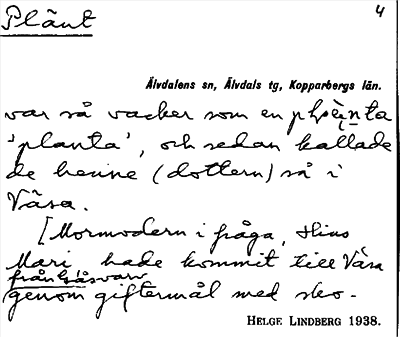 Plänt 4
Älvdalens sn, Älvdals tg, Kopparbergs län.
var så vacker som en
'planta', och sedan kallade
de henne (dottern) så i
Våsa.
[Mormodern i fråga, Hins
Mari hade kommit till Våsa
från
genom giftermål med sko-
HELGE LINDBERG 1938.